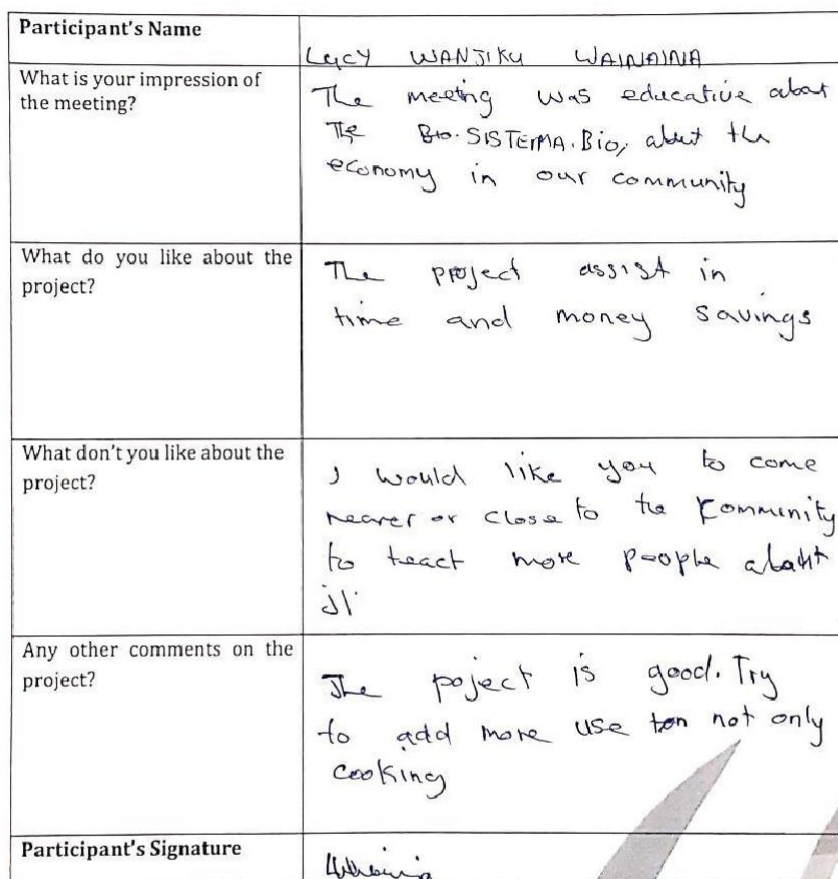 Participant's Name
Lucy WANJIKU WAINAINA
What is your impression of
the meeting?
The meeting was educative about
The Bio.SISTEMA.Bio, about the
economy in our community
What do you like about the
project?
The project assist in
time and money savings
What don't you like about the
project?
I would like you to come
nearer or close to the Community
to teact more people about
it
Any other comments on the
project?
The poject is good. Try
to add more use not only
cooking
Participant's Signature